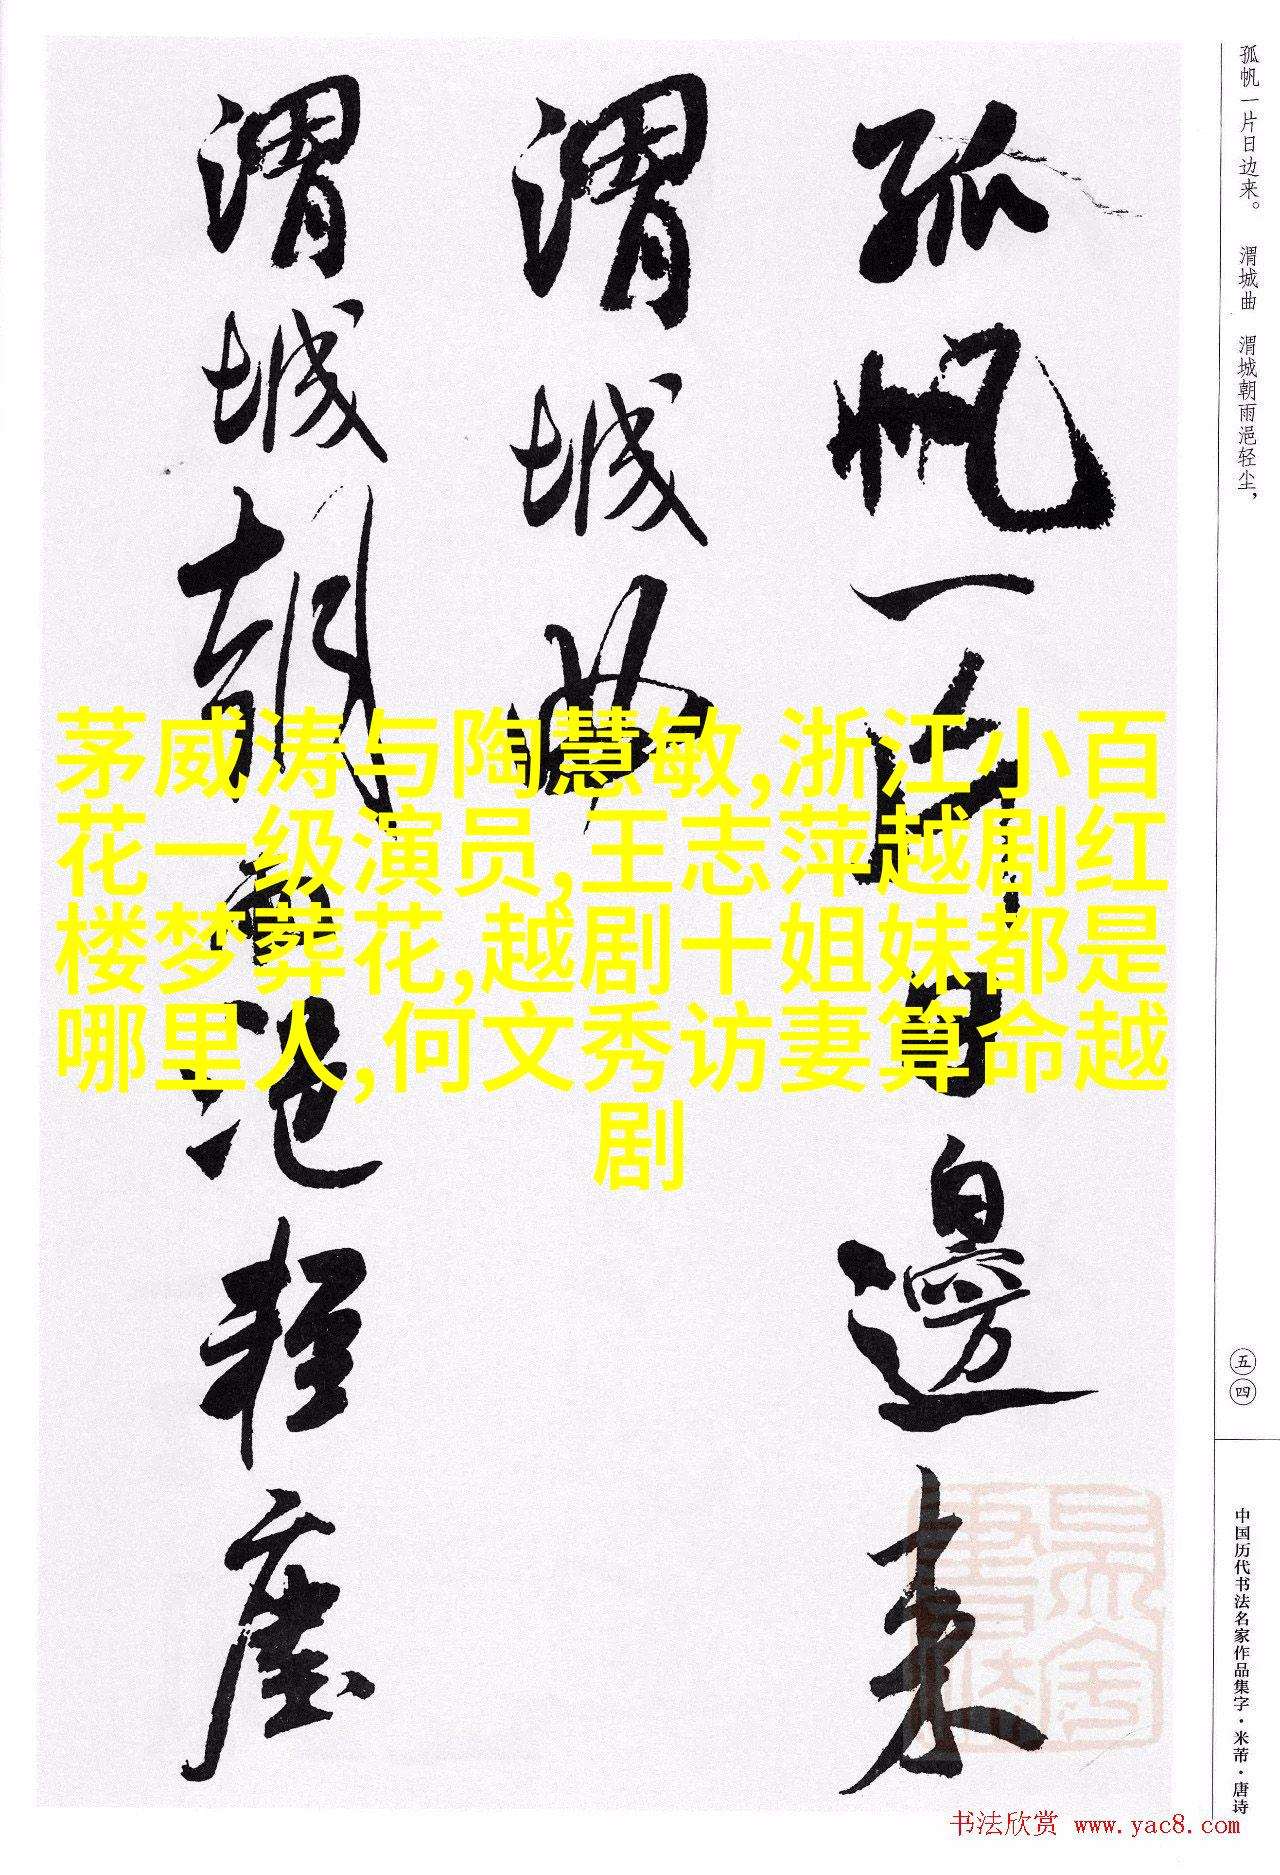 孤帆一片日边来。　渭城曲　渭城朝雨浥轻尘，
五四
中国历代书法名家作品集字·米芾·唐诗
孤帆一片日邊来
渭城曲
渭城朝雨浥輕塵
茅威涛与陶慧敏,浙江小百
花一级演员,王志萍越剧红
楼梦葬花,越剧十姐妹都是
哪里人,何文秀访妻算命越
剧
书法欣赏 www.yac8.com